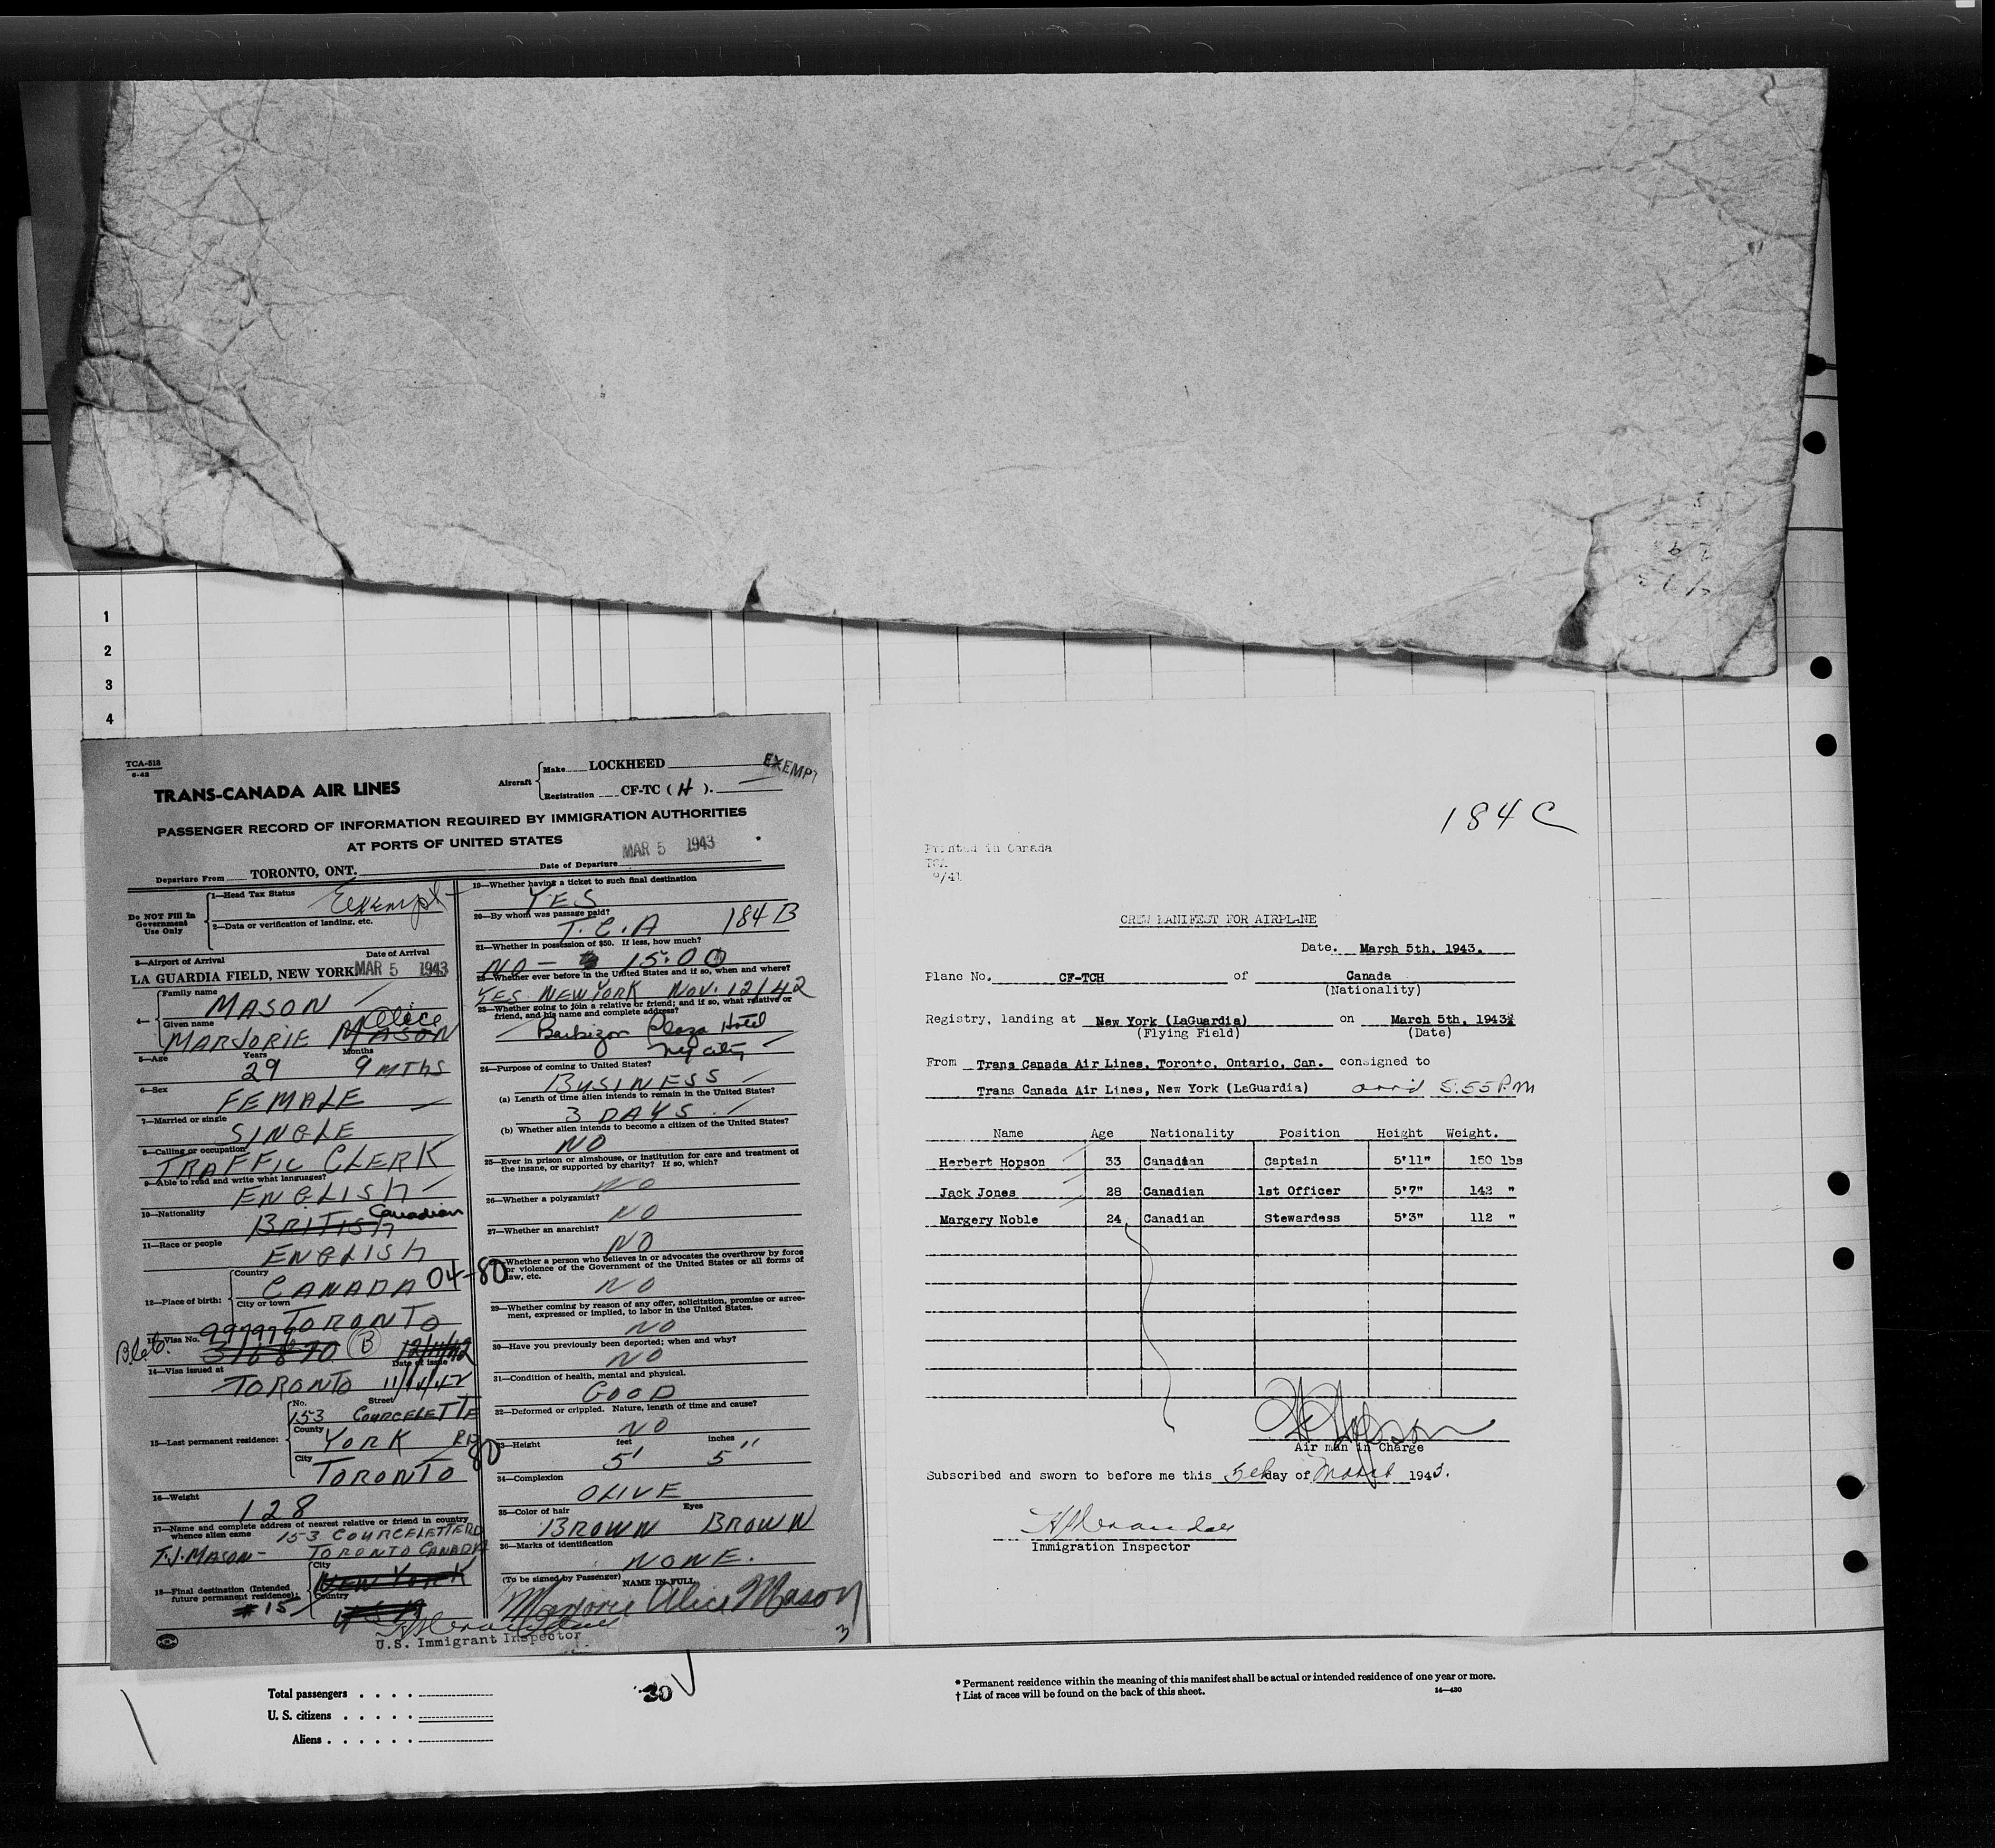 1
2
3
4
TCA-518
6-42
TRANS-CANADA AIR LINES
Aircraft
Make LOCKHEED
Registration CF-TC ( H ).
EXEMPT
PASSENGER RECORD OF INFORMATION REQUIRED BY IMMIGRATION AUTHORITIES
AT PORTS OF UNITED STATES
Departure From TORONTO, ONT.
Date of Departure MAR 5 1943
Do NOT Fill In
Government
Use Only
1—Head Tax Status
Exempt
2—Data or verification of landing, etc.
3—Airport of Arrival
Date of Arrival
LA GUARDIA FIELD, NEW YORK MAR 5 1943
4—
Family name
MASON
Given name
Alice
MARJORIE MASON
5—Age
Years
Months
29 9 MTHS
6—Sex
FEMALE
7—Married or single
SINGLE
8—Calling or occupation
TRAFFIC CLERK
9—Able to read and write what languages?
ENGLISH
10—Nationality
BRITISH Canadian
11—Race or people
ENGLISH
12—Place of birth:
Country
CANADA 04-80
City or town
TORONTO
13—Visa No.
997976
316870 B 12/11/42
Date of issue
14—Visa issued at
TORONTO 11/14/42
15—Last permanent residence:
No.
Street
153 COURCELETTE
County
YORK RD
80
City
TORONTO
16—Weight
128
17—Name and complete address of nearest relative or friend in country
whence alien came
153 COURCELETTE RD
T.J. MASON— TORONTO CANADA
18—Final destination (Intended
future permanent residence):
City
NEW YORK
Country
# 15
USA
U.S. Immigrant Inspector
19—Whether having a ticket to such final destination
YES
20—By whom was passage paid?
T.C.A 184 B
21—Whether in possession of $50. If less, how much?
NO — $ 15.00
22—Whether ever before in the United States and if so, when and where?
YES NEW YORK NOV. 12/42
23—Whether going to join a relative or friend; and if so, what relative or
friend, and his name and complete address?
Barbizon Plaza Hotel
NY City
24—Purpose of coming to United States?
BUSINESS
(a) Length of time alien intends to remain in the United States?
3 DAYS.
(b) Whether alien intends to become a citizen of the United States?
NO
25—Ever in prison or almshouse, or institution for care and treatment of
the insane, or supported by charity? If so, which?
NO
26—Whether a polygamist?
NO
27—Whether an anarchist?
NO
Whether a person who believes in or advocates the overthrow by force
or violence of the Government of the United States or all forms of
law, etc.
NO
29—Whether coming by reason of any offer, solicitation, promise or agree-
ment, expressed or implied, to labor in the United States.
NO
30—Have you previously been deported; when and why?
NO
31—Condition of health, mental and physical.
GOOD
32—Deformed or crippled. Nature, length of time and cause?
NO
33—Height
feet
inches
5' 5"
34—Complexion
OLIVE
35—Color of hair
Eyes
BROWN BROWN
36—Marks of identification
NONE.
(To be signed by Passenger)
NAME IN FULL
Marjorie Alice Mason
3
184 C
Printed in Canada
TCA
CREW MANIFEST FOR AIRPLANE
Date. March 5th, 1943.
Plane No. CF-TCH of Canada
(Nationality)
Registry, landing at New York (LaGuardia) on March 5th, 1943
(Flying Field) (Date)
From Trans Canada Air Lines, Toronto, Ontario, Can. consigned to
Trans Canada Air Lines, New York (LaGuardia) arr'd 5.55 P.M
Name Age Nationality Position Height Weight.
Herbert Hopson 33 Canadian Captain 5'11" 150 lbs
Jack Jones 28 Canadian 1st Officer 5'7" 142 "
Margery Noble 24 Canadian Stewardess 5'3" 112 "
H Hopson
Air man in Charge
Subscribed and sworn to before me this 5th day of March 1943.
Immigration Inspector
Total passengers . . . .
U. S. citizens . . . . .
Aliens . . . . . .
30
* Permanent residence within the meaning of this manifest shall be actual or intended residence of one year or more.
† List of races will be found on the back of this sheet.
14—430